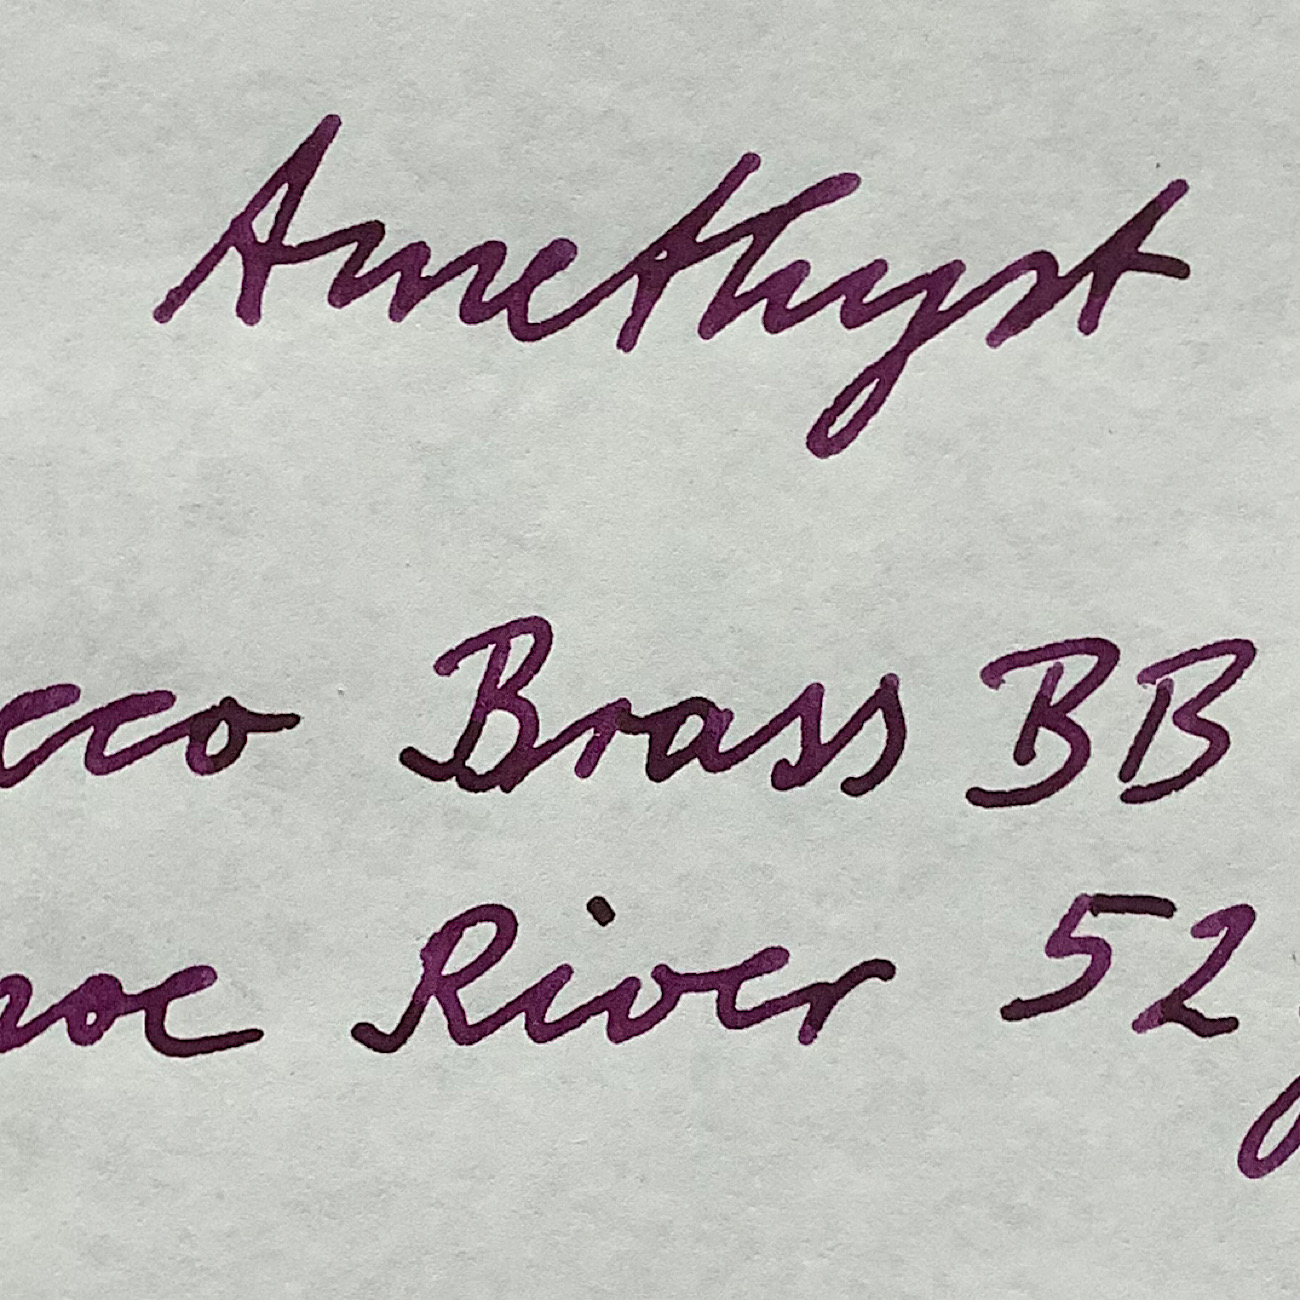 Amethyst
cco Brass BB
moe River 52